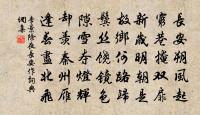 長安朔風起
窮巷掩雙扉
新歲明朝是
故鄉何路歸
鬢絲饒鏡色
隙雪奪燈輝
卻羨秦州雁
逢春盡北飛
李景除夜長安作詞典
網集